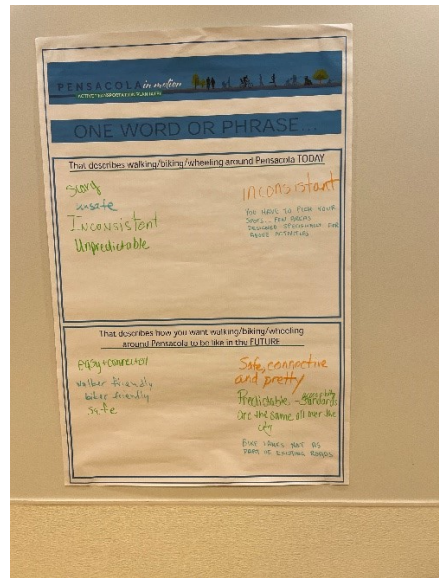 PENSACOLA in motion
ACTIVE TRANSPORTATION PLAN
ONE WORD OR PHRASE...
That describes walking/biking/wheeling around Pensacola TODAY
scary
unsafe
Inconsistent
Unpredictable
inconsistant
YOU HAVE TO PICK YOUR
SPOTS... FEW AREAS
DESIGNED SPECIFICALLY FOR
THESE ACTIVITIES
That describes how you want walking/biking/wheeling
around Pensacola to be like in the FUTURE
easy + connected
walker friendly
biker friendly
safe
Safe, connective
and pretty
Predictable - Accessibility
Standards
are the same all over the
city
BIKE LANES NOT AS
PART OF EXISTING ROADS